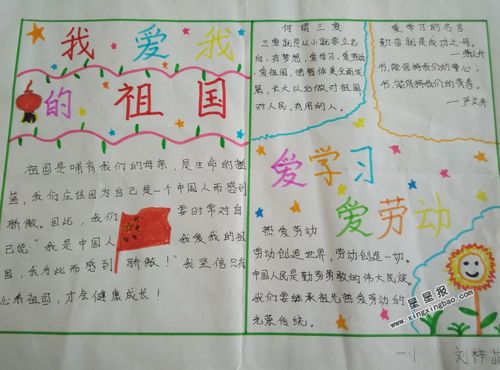 我爱我
的祖国
祖国是哺育我们的母亲,是生命的摇
篮,我们应该因为自己是一个中国人而感到
骄傲。因此,我们要时常对自
己说:"我是中国人 我爱我的祖
国,我为此而感到骄傲!"我坚信只有
心系祖国,才会健康成长!
何谓三爱
三爱就是从小就要立志
向,有梦想,爱学习,爱劳动,
爱祖国,
展,长大以后做对祖国
对人民,有用的人。
爱学习的名言
勤奋就是成功之母。
——茅以升
书,能保持我们的童心;
书,能保持我们的青春。
——严文井
爱学习
爱劳动
热爱劳动
劳动创造世界,劳动创造一切。
中国人民是勤劳勇敢的伟大民族
我们要继承祖先热爱劳动的
光荣传统。
星星报
www.xingxingbao.com
一1 刘梓